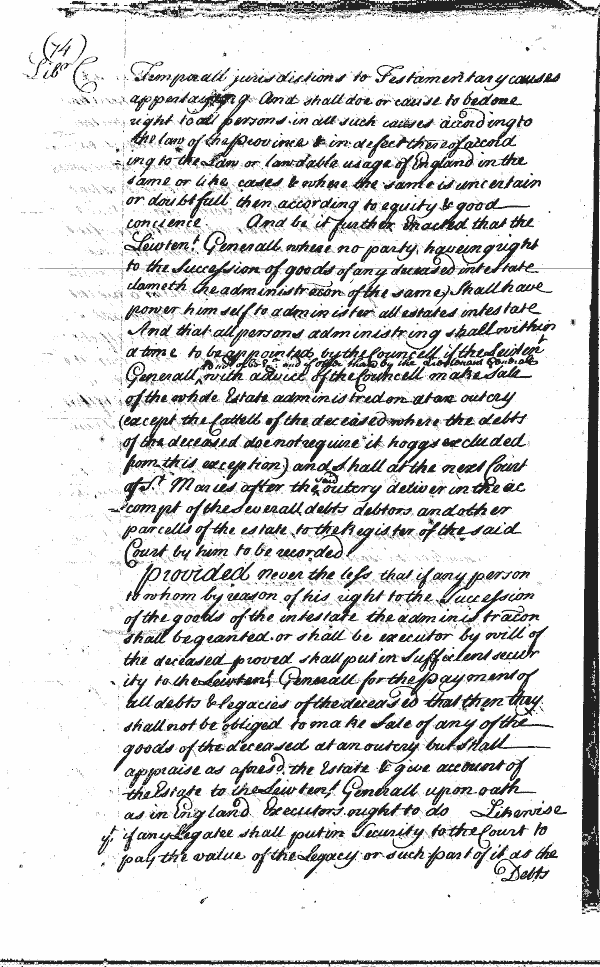 (74)
Libr C
Temporall jurisdictions to Testamentary causes
appertayning And shall doe or cause to be done
right to all persons in all such causes according to
the law of the Province & in defect thereof accord
ing to the Law or lawdable usage of England in the
same or like cases & where the same is uncertain
or doubtfull then according to equity & good
concience And be it further Enacted that the
Lewtent. Generall where no party haveing right
to the Succession of goods of any deceased intestate
clameth the administracon of the same) Shall have
power himself to administer all estates intestate
And that all persons administring shall within
a time to be appointed by the Councell if the Leident
Generall with advice of the Councell make Sale
of the whole Estate administred on at an outcry
(except the Cattell of the deceased where the debts
of the deceased doe not require it hoggs excluded
from this exception) and shall at the next Court
of St. Maries after the said outcry deliver in the ac
compt of the severall debts debtors and other
parcells of the estate to the Register of the said
Court by him to be recorded
Provided never the less that if any person
to whom by reason of his right to the Succession
of the goods of the intestate the administracon
shall be granted or shall be executor by will of
the deceased proved shall put in Sufficient secur
ity to the Lewtent. Generall for the payment of
all debts & legacies of the deceased that then they
shall not be obliged to make Sale of any of the
goods of the deceased at an outcry but shall
appraise as aforesd. the Estate & give account of
the Estate to the Lewtent. Generall upon oath
as in England Executors ought to do Likewise
if any Legatee shall put in Security to the Court to
pay the value of the Legacy or such part of it as the
Debts